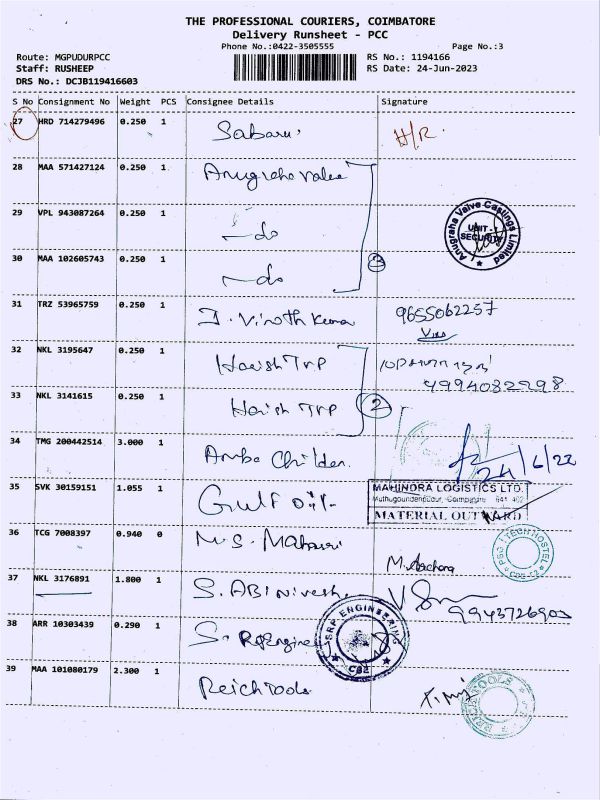 THE PROFESSIONAL COURIERS, COIMBATORE
Delivery Runsheet - PCC
Phone No.:0422-3505555 Page No.:3
Route: MGPUDURPCC RS No.: 1194166
Staff: RUSHEEP RS Date: 24-Jun-2023
DRS No.: DCJB119416603
S No Consignment No Weight PCS Consignee Details Signature
27 HRD 714279496 0.250 1 H/R.
28 MAA 571427124 0.250 1 Anugraha Valve
29 VPL 943087264 0.250 1 do
Anugraha Valve Castings Limited
UNIT-
SECURITY
30 MAA 102605743 0.250 1 do
3
31 TRZ 53965759 0.250 1 9655062257
32 NKL 3195647 0.250 1 Harish TRP
4994082998
33 NKL 3141615 0.250 1 Harish TRP 2
34 TMG 200442514 3.000 1 Amba Childen.
24/6/22
35 SVK 30159151 1.055 1 Gulf oil
MAHINDRA LOGISTICS LTD.
Muthugoundenpudur, Coimbatore 641 402
MATERIAL OUTWARD
36 TCG 7008397 0.940 0 M.S.
PSG I TECH HOSTEL
CBE-62
37 NKL 3176891 1.800 1 S. ABI
9943726903
38 ARR 10303439 0.290 1 S.
SRP ENGINEERING
CBE
39 MAA 101080179 2.300 1 Reich Tools
REICH TOOLS